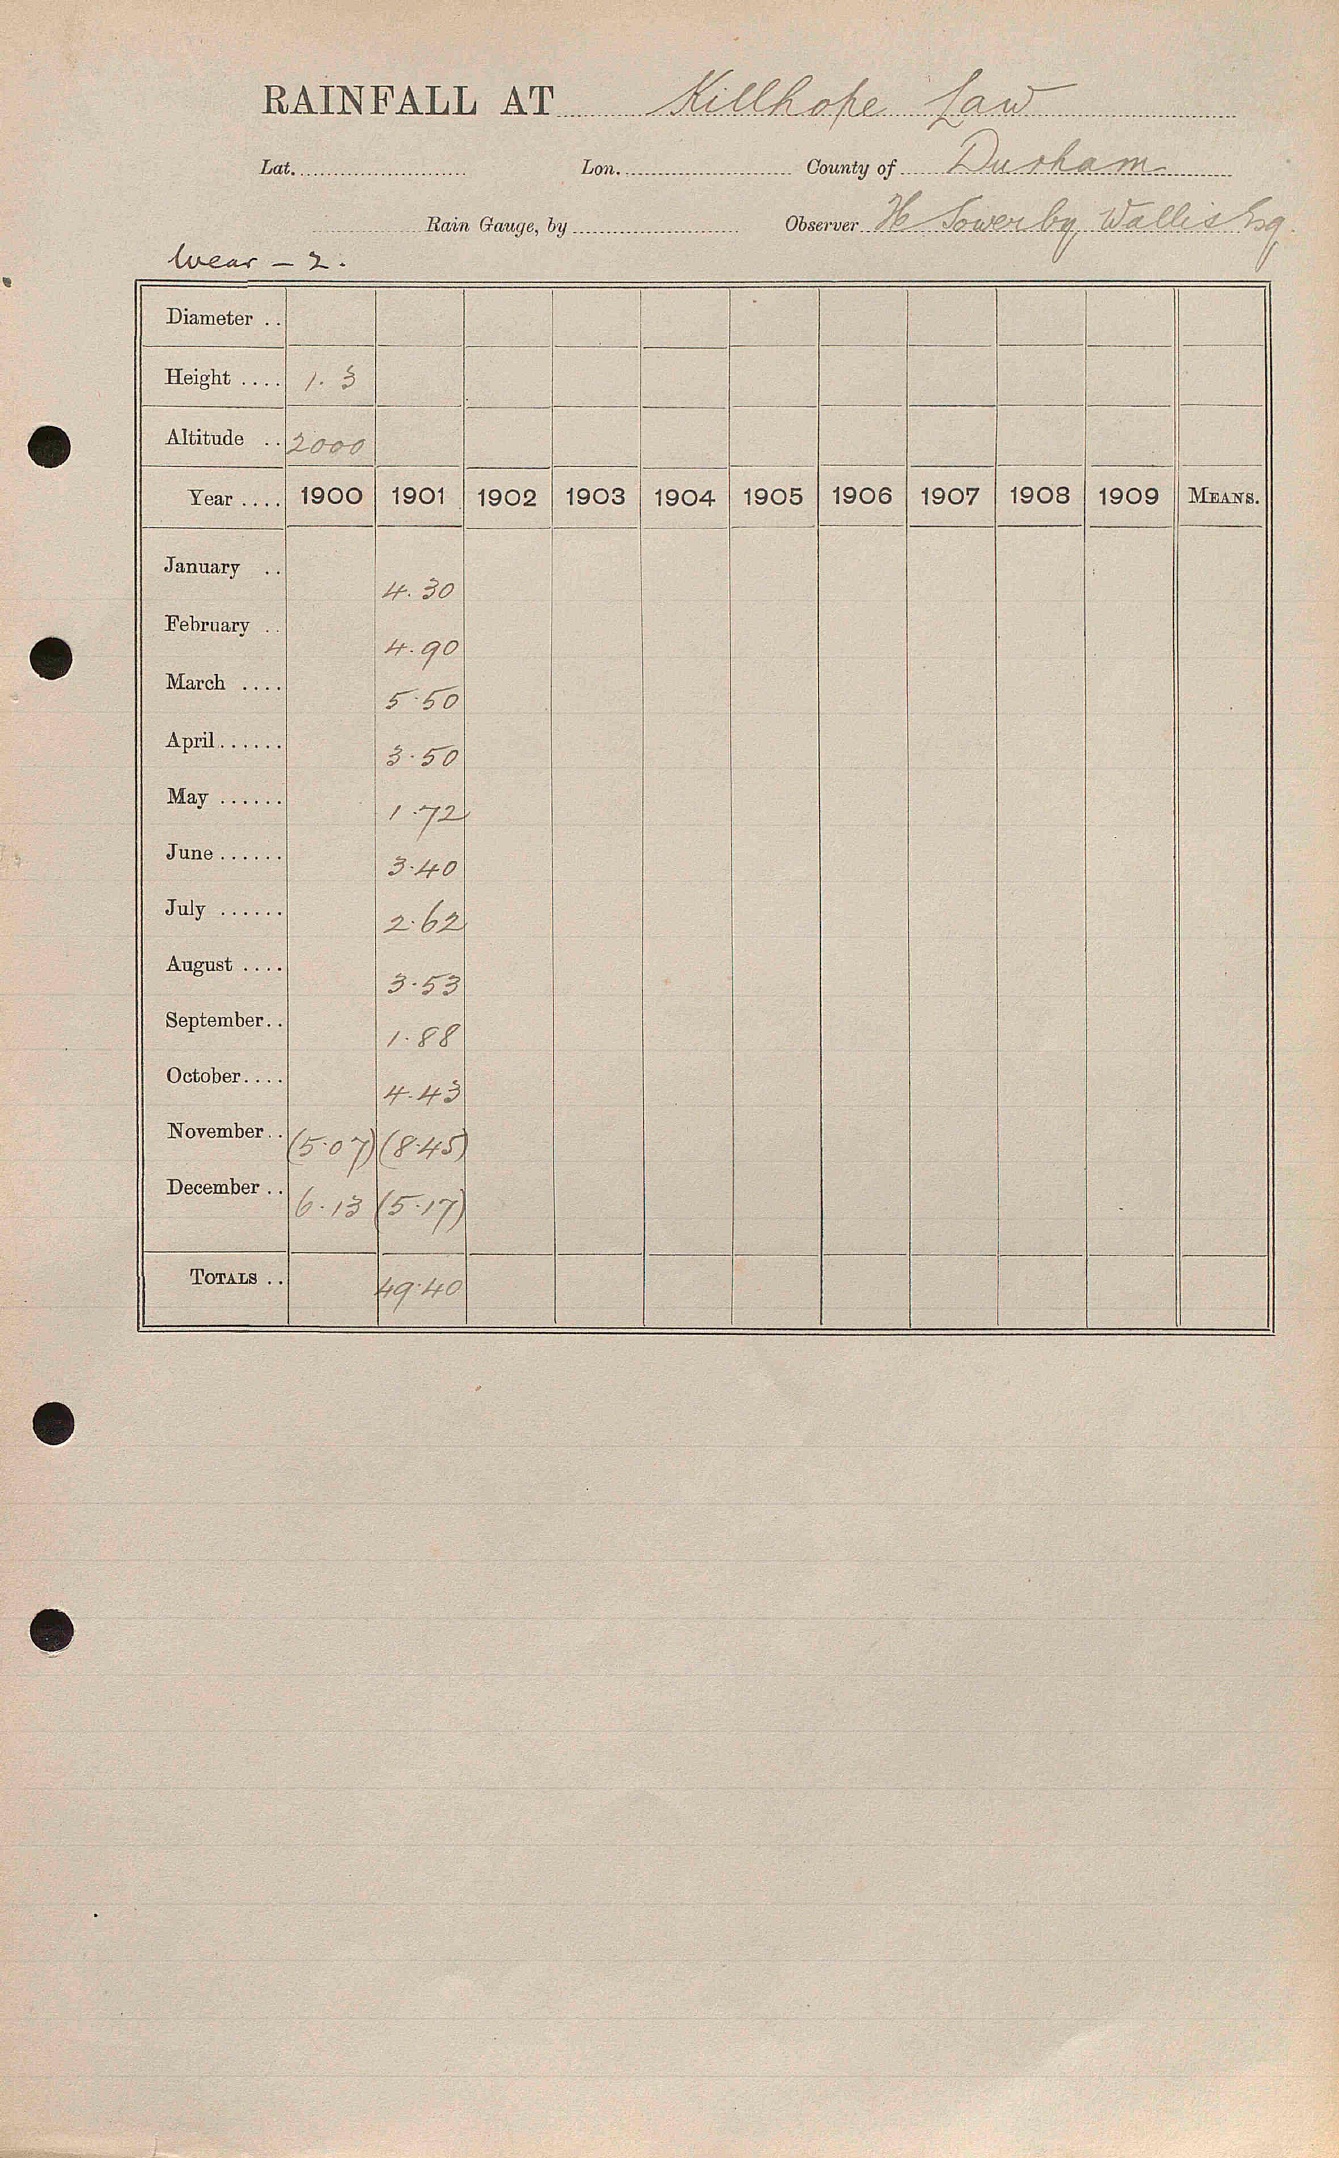 RAINFALL AT Killhope Law
Lat. Lon. County of Durham
Rain Gauge, by Observer H Sowerby Wallis Esq.
Wear - 2.
Diameter ..
Height .... 1. 3
Altitude .. 2000
Year .... 1900 1901 1902 1903 1904 1905 1906 1907 1908 1909 MEANS.
January .. 4.30
February .. 4.90
March .... 5.50
April...... 3.50
May ...... 1.72
June ...... 3.40
July ...... 2.62
August .... 3.53
September.. 1.88
October.... 4.43
November.. (5.07) (8.45)
December .. 6.13 (5.17)
TOTALS .. 49.40